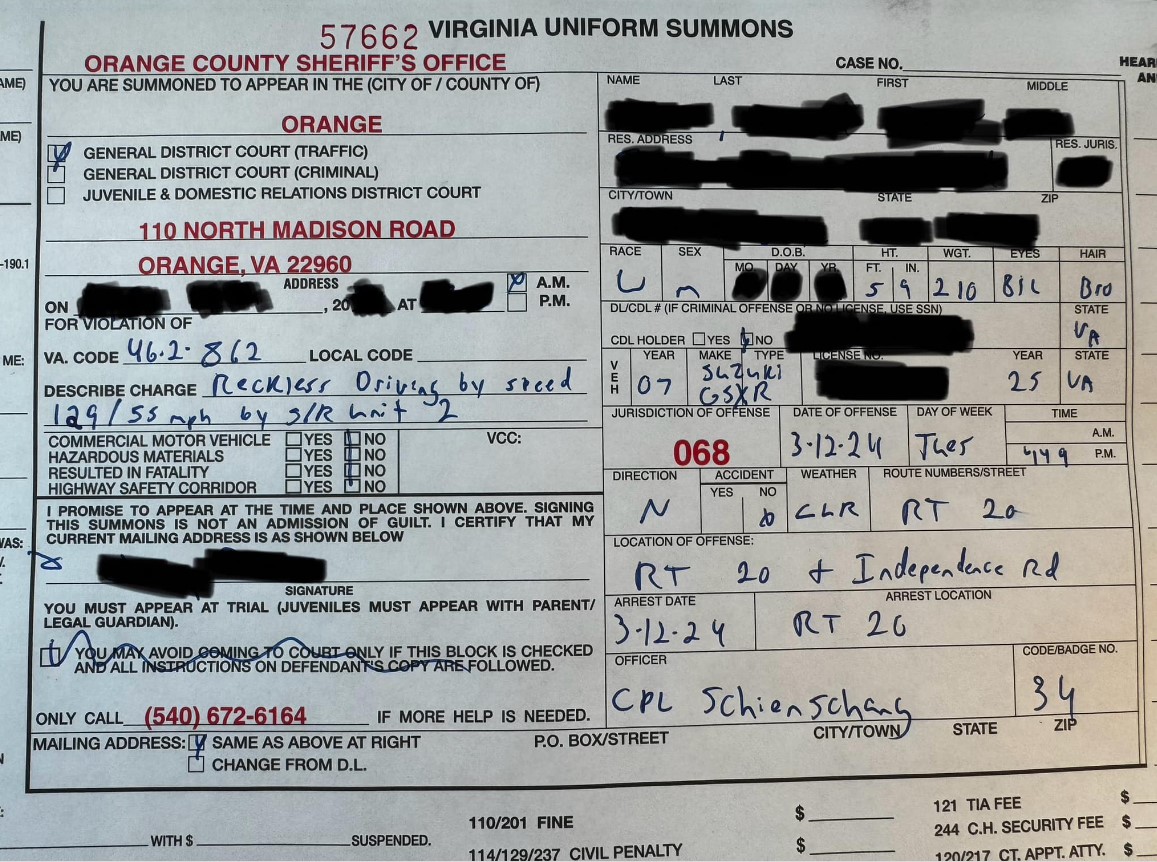 57662 VIRGINIA UNIFORM SUMMONS
ORANGE COUNTY SHERIFF'S OFFICE
YOU ARE SUMMONED TO APPEAR IN THE (CITY OF / COUNTY OF)
ORANGE
GENERAL DISTRICT COURT (TRAFFIC)
GENERAL DISTRICT COURT (CRIMINAL)
JUVENILE & DOMESTIC RELATIONS DISTRICT COURT
110 NORTH MADISON ROAD
-190.1
ORANGE, VA 22960
ADDRESS
A.M.
ON , 20 AT P.M.
FOR VIOLATION OF
ME: VA. CODE 46.2-862 LOCAL CODE
DESCRIBE CHARGE Reckless Driving by speed
129/55 mph by S/R unit 2
COMMERCIAL MOTOR VEHICLE YES NO VCC:
HAZARDOUS MATERIALS YES NO
RESULTED IN FATALITY YES NO
HIGHWAY SAFETY CORRIDOR YES NO
I PROMISE TO APPEAR AT THE TIME AND PLACE SHOWN ABOVE. SIGNING
THIS SUMMONS IS NOT AN ADMISSION OF GUILT. I CERTIFY THAT MY
CURRENT MAILING ADDRESS IS AS SHOWN BELOW
SIGNATURE
YOU MUST APPEAR AT TRIAL (JUVENILES MUST APPEAR WITH PARENT/
LEGAL GUARDIAN).
YOU MAY AVOID COMING TO COURT ONLY IF THIS BLOCK IS CHECKED
AND ALL INSTRUCTIONS ON DEFENDANT'S COPY ARE FOLLOWED.
ONLY CALL (540) 672-6164 IF MORE HELP IS NEEDED.
CASE NO.
NAME LAST FIRST MIDDLE
RES. ADDRESS RES. JURIS.
CITY/TOWN STATE ZIP
RACE SEX D.O.B. HT. WGT. EYES HAIR
MO. DAY YR. FT. IN.
m 5 9 210 Bro
DL/CDL # (IF CRIMINAL OFFENSE OR NO LICENSE, USE SSN) STATE
CDL HOLDER YES NO VA
VEH YEAR MAKE TYPE LICENSE NO. YEAR STATE
07 Suzuki GSXR 25 VA
JURISDICTION OF OFFENSE DATE OF OFFENSE DAY OF WEEK TIME
068 3-12-24 Tues A.M.
P.M.
DIRECTION ACCIDENT WEATHER ROUTE NUMBERS/STREET
YES NO
N CLR RT 20
LOCATION OF OFFENSE:
RT 20 + Independence Rd
ARREST DATE ARREST LOCATION
3-12-24 RT 20
OFFICER CODE/BADGE NO.
CPL Schienschang 34
MAILING ADDRESS: SAME AS ABOVE AT RIGHT P.O. BOX/STREET CITY/TOWN STATE ZIP
CHANGE FROM D.L.
WITH $ SUSPENDED.
110/201 FINE $
114/129/237 CIVIL PENALTY $
121 TIA FEE $
244 C.H. SECURITY FEE $
120/217 CT. APPT. ATTY. $